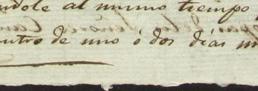 ndole al mismo tiempo
entro de uno ó dos dias